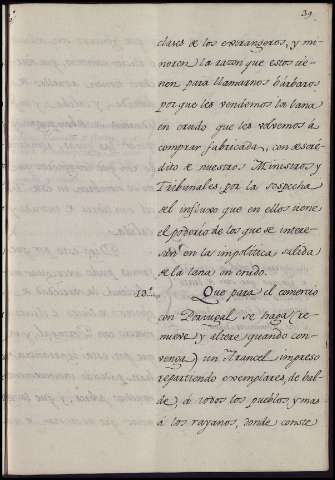 39.
clases de los extrangeros, y mi
noren la razon que estos tie
nen para llamarnos bárbaros
porque les vendemos la lana
en crudo que les volvemos à
comprar fabricada, con descré
dito de nuestros Ministros y
Tribunales, por la sospecha
del influxo que en ellos tiene
el poderio de los que se intere
san en la impolitica salida
de la lana en crudo.
13.ª Que para el comercio
con Portugal se haga (re
nueve, y altere quando con
venga) un Arancel impreso
repartiendo exemplares, de bal
de, à todos los pueblos, y mas
à los rayanos, donde conste